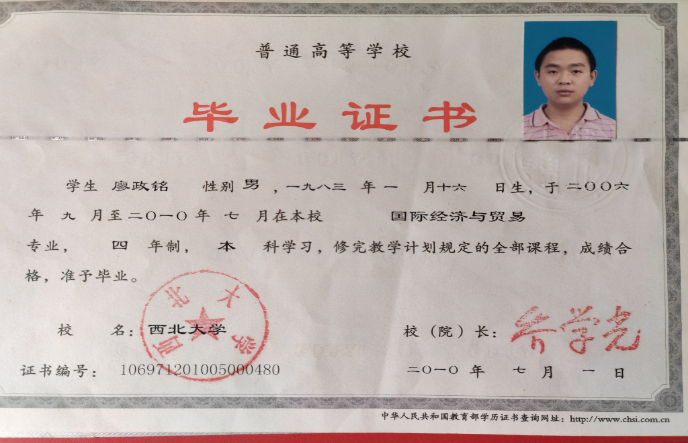 普通高等学校
毕业证书
学生 廖政铭 性别 男 ,一九八三 年 一 月十六 日生，于 二〇〇六
年 九 月至二〇一〇年 七 月在本校 国际经济与贸易
专业， 四 年制， 本 科学习，修完教学计划规定的全部课程，成绩合
格，准予毕业。
校 名：西北大学 校（院）长：
西北大学
证书编号： 106971201005000480 二〇一〇 年 七 月 一 日
中华人民共和国教育部学历证书查询网址：http://www.chsi.com.cn